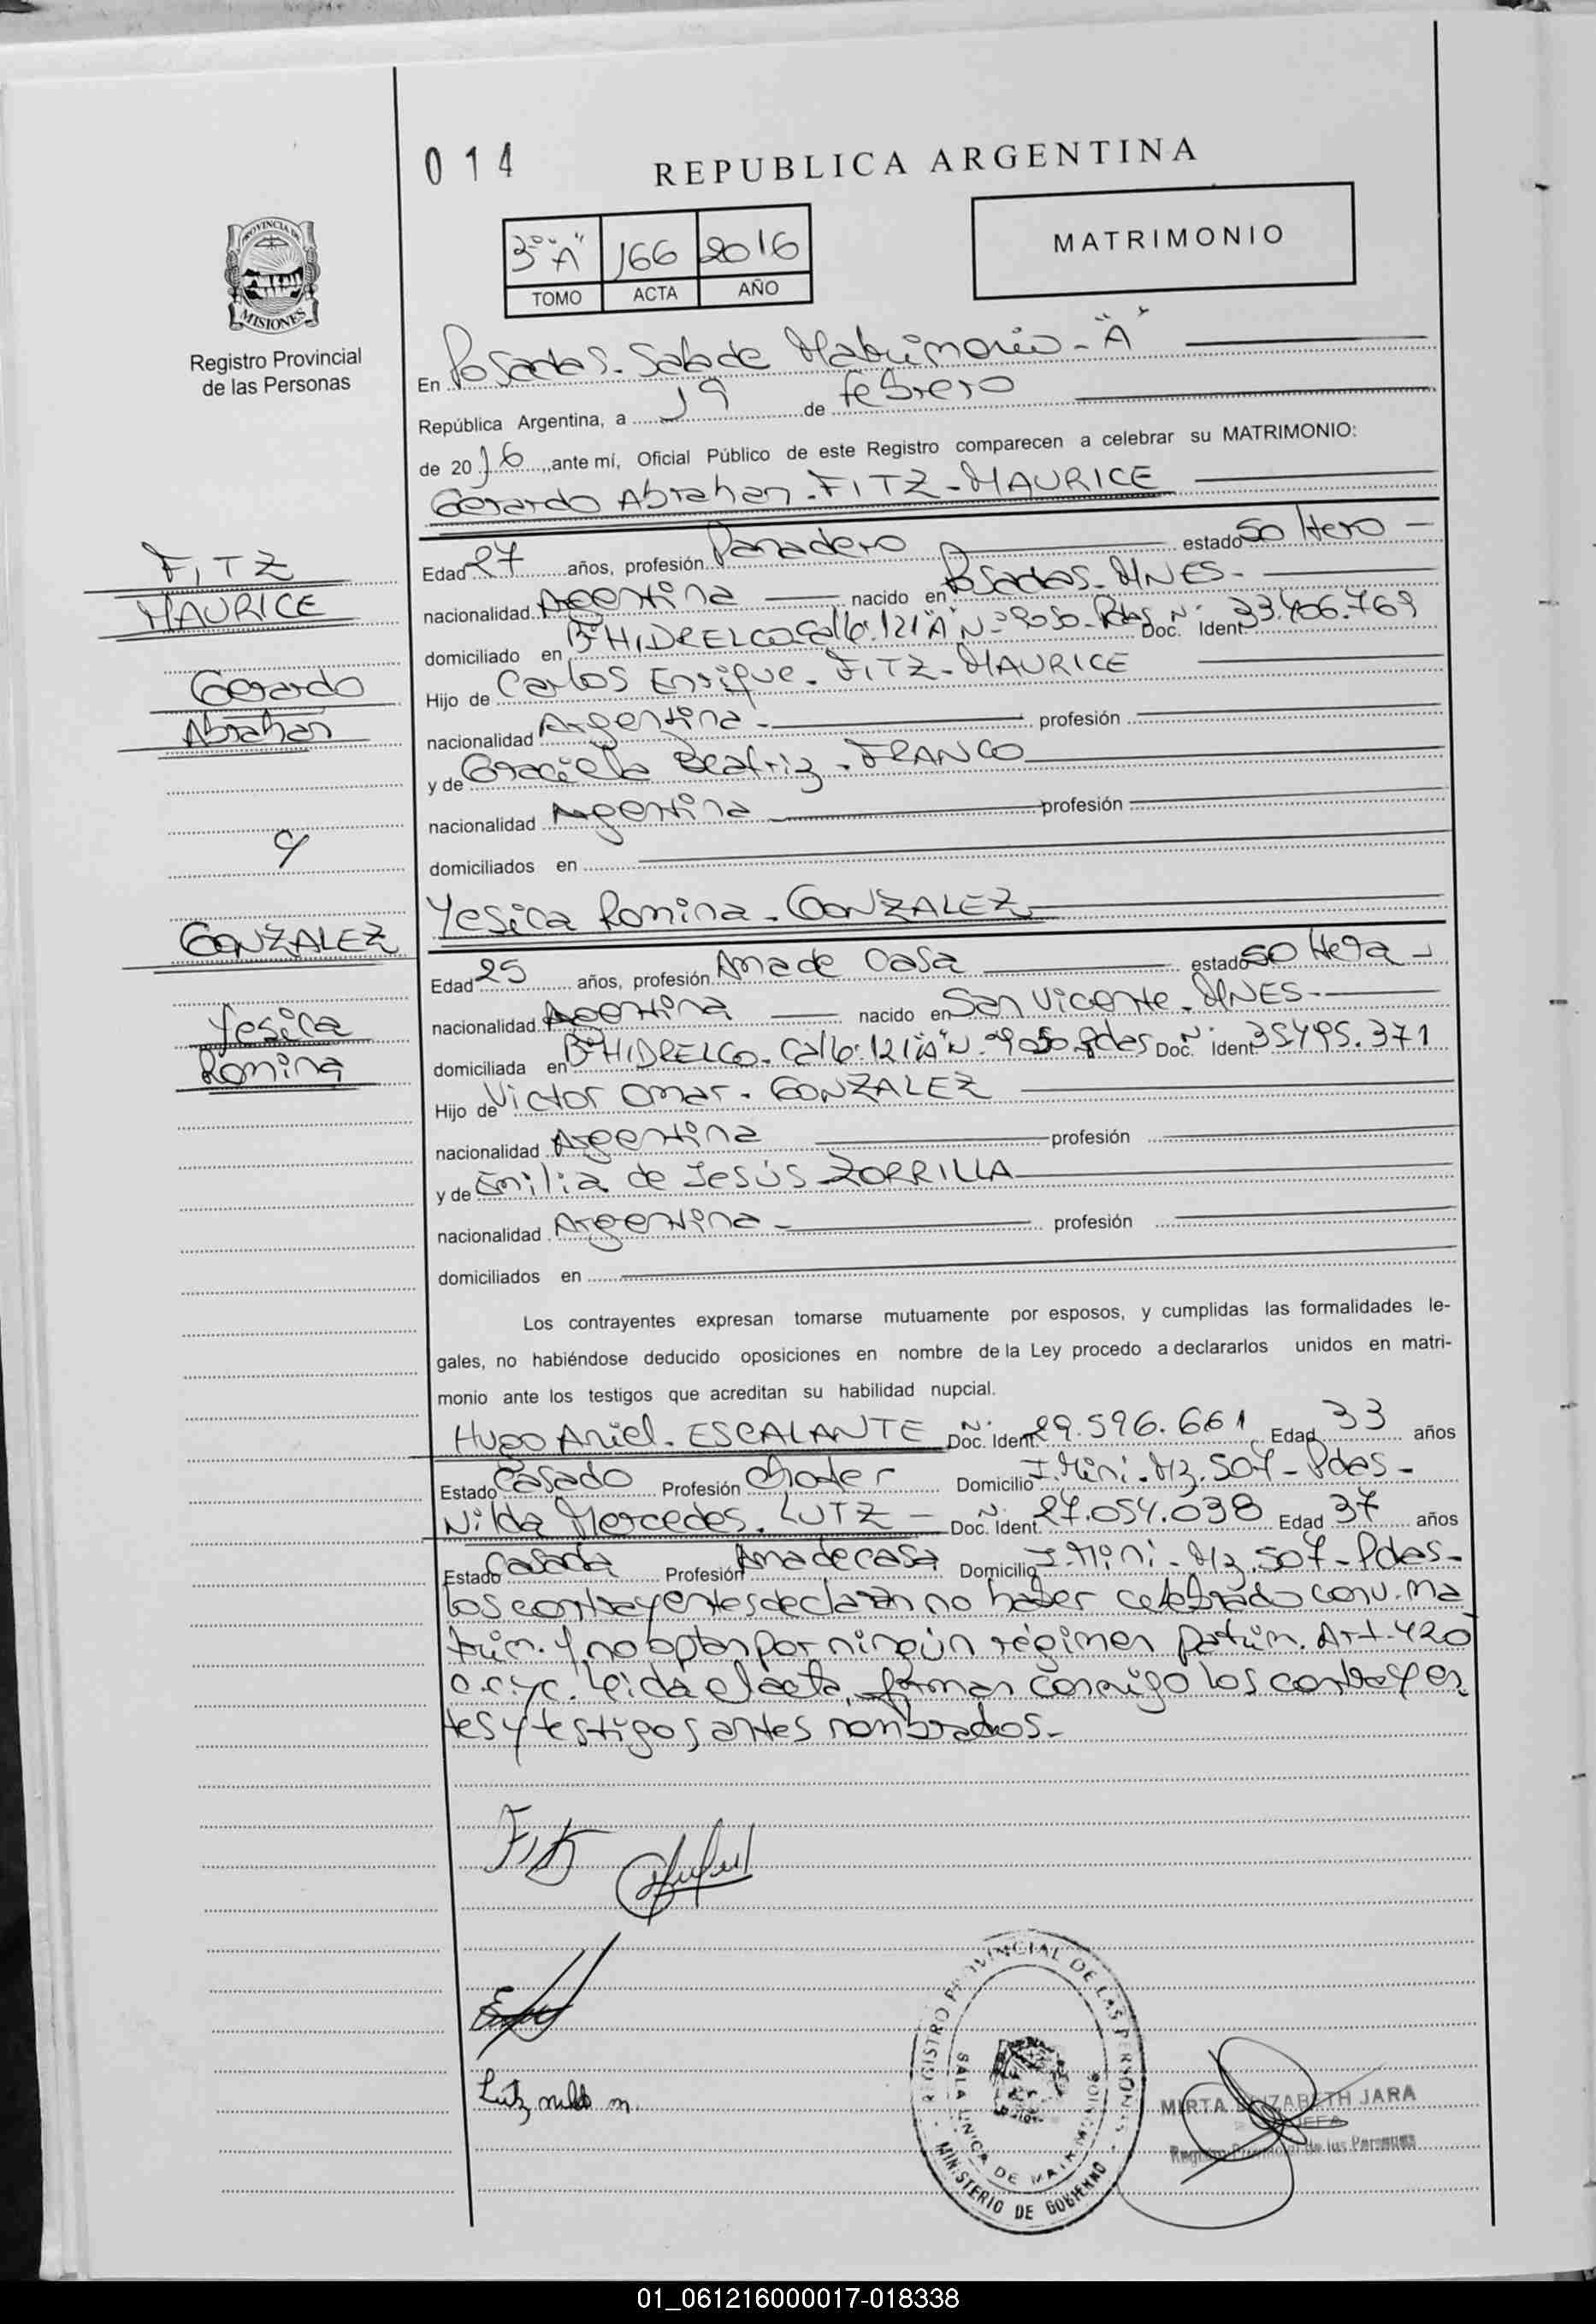 014
REPUBLICA ARGENTINA
PROVINCIA DE
MISIONES
Registro Provincial
de las Personas
3º "A" 166 2016
TOMO ACTA AÑO
MATRIMONIO
En Posadas - Sala de Matrimonio - "A"
República Argentina, a 19 de febrero
de 2016, ante mí, Oficial Público de este Registro comparecen a celebrar su MATRIMONIO:
Gerardo Abrahan - FITZ - MAURICE
FITZ
MAURICE
Gerardo
Abrahan
c/
GONZALEZ
Yesica
Romina
Edad 27 años, profesión Panadero estado soltero -
nacionalidad Argentina nacido en Posadas - MNES -
domiciliado en Bº HIDRELCO - Calle 121 "A" Nº 9050 - Pdas Nº Doc. Ident. 33.406.769
Hijo de Carlos Enrique - FITZ - MAURICE
nacionalidad Argentina - profesión
y de Graciela Beatriz - FRANCO
nacionalidad Argentina profesión
domiciliados en
Yesica Romina - GONZALEZ
Edad 25 años, profesión Ama de Casa estado soltera -
nacionalidad Argentina nacido en San Vicente - MNES -
domiciliada en Bº HIDRELCO - Calle 121 "A" Nº 9050 Pdas Nº Doc. Ident. 35.495.371
Hijo de Victor Omar - GONZALEZ
nacionalidad Argentina profesión
y de Emilia de Jesús ZORRILLA
nacionalidad Argentina - profesión
domiciliados en
Los contrayentes expresan tomarse mutuamente por esposos, y cumplidas las formalidades le-
gales, no habiéndose deducido oposiciones en nombre de la Ley procedo a declararlos unidos en matri-
monio ante los testigos que acreditan su habilidad nupcial.
Hugo Ariel - ESCALANTE Nº Doc. Ident. 29.596.661 Edad 33 años
Estado Casado Profesión Chofer Domicilio I. Miní - Mz. 507 - Pdas -
Nilda Mercedes - LUTZ - Nº Doc. Ident. 27.054.038 Edad 37 años
Estado Casada Profesión Ama de casa Domicilio I. Miní - Mz. 507 - Pdas -
los contrayentes declaran no haber celebrado conv. ma
trim. y no optan por ningún régimen patrim. Art. 420
C.C.yC. Leida el acta, firman conmigo los contrayen
tes y testigos antes nombrados -
Fitz
Lutz nilda m.
REGISTRO PROVINCIAL DE LAS PERSONAS
SALA UNICA DE MATRIMONIOS
MINISTERIO DE GOBIERNO
MIRTA ELIZABETH JARA
JEFA
Registro Provincial de las Personas
01_061216000017-018338